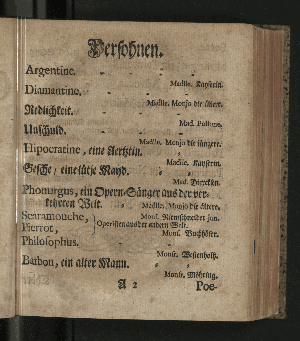 Persohnen.
Argentine.
Madlle. Kayserin.
Diamantine.
Madlle. Monjo die ältere.
Redlichkeit.
Mad. Pollone.
Unschuld.
Madlle. Monjo die jüngere.
Hipocratine, eine Aertztin.
Madlle. Kayserin.
Gesche, eine lütje Mayd.
Mad. Dierckßen.
Phonurgus, ein Opern-Sänger aus der ver-
kehrten Welt.
Madlle. Monjo die ältere.
Scaramouche,
Mons. Riemschneider jun.
Pierrot,
Operisten aus der andern Welt.
Mons. Buchhöfer.
Philosophus.
Mons. Westenholtz.
Barbou, ein alter Mann.
Mons. Möhring.
A 2
Poe-